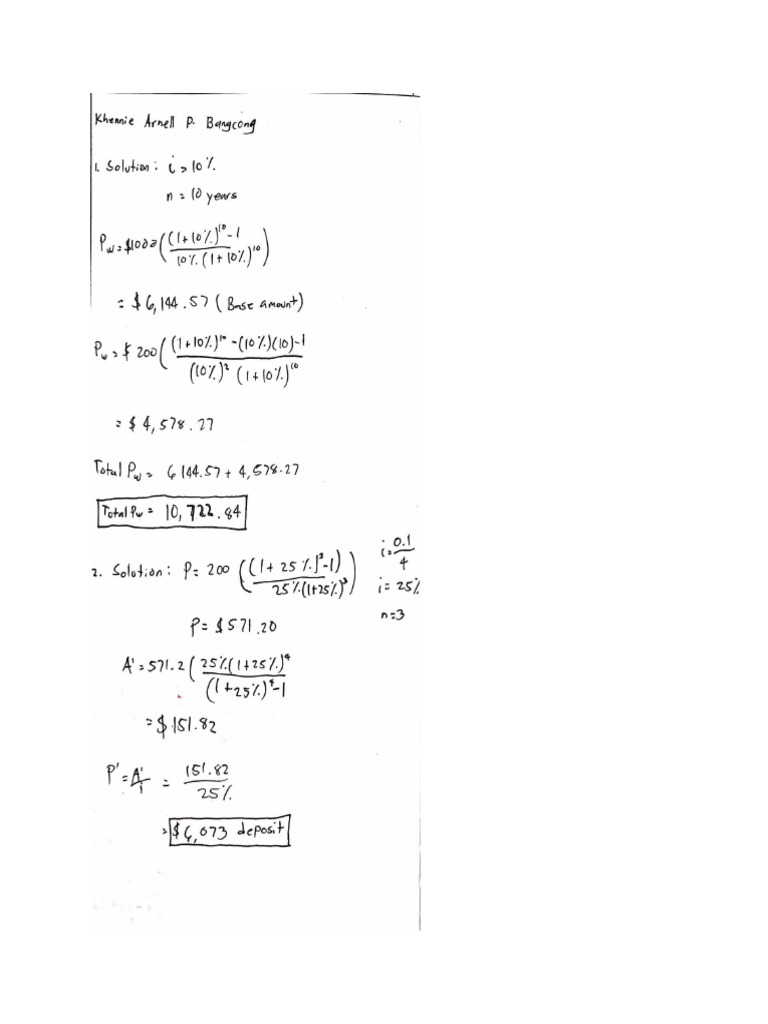 Khennie Arnell P. Bangcong
1. Solution: i = 10%
n = 10 years
Pw = $1000 ( (1+10%)^10 - 1 / 10% (1+10%)^10 )
= $6,144.57 (Base amount)
Pw = $200 ( (1+10%)^10 - (10%)(10) - 1 / (10%)^2 (1+10%)^10
= $4,578.27
Total Pw = 6144.57 + 4,578.27
Total Pw = 10,722.84
2. Solution: P = 200 ( (1+25%)^3 - 1) / 25% (1+25%)^3 ) i = 0.1/4
i = 25%
n = 3
P = $571.20
A' = 571.2 ( 25% (1+25%)^4 / (1+25%)^4 - 1
= $151.82
P' = A'/i = 151.82 / 25%
= $6,073 deposit